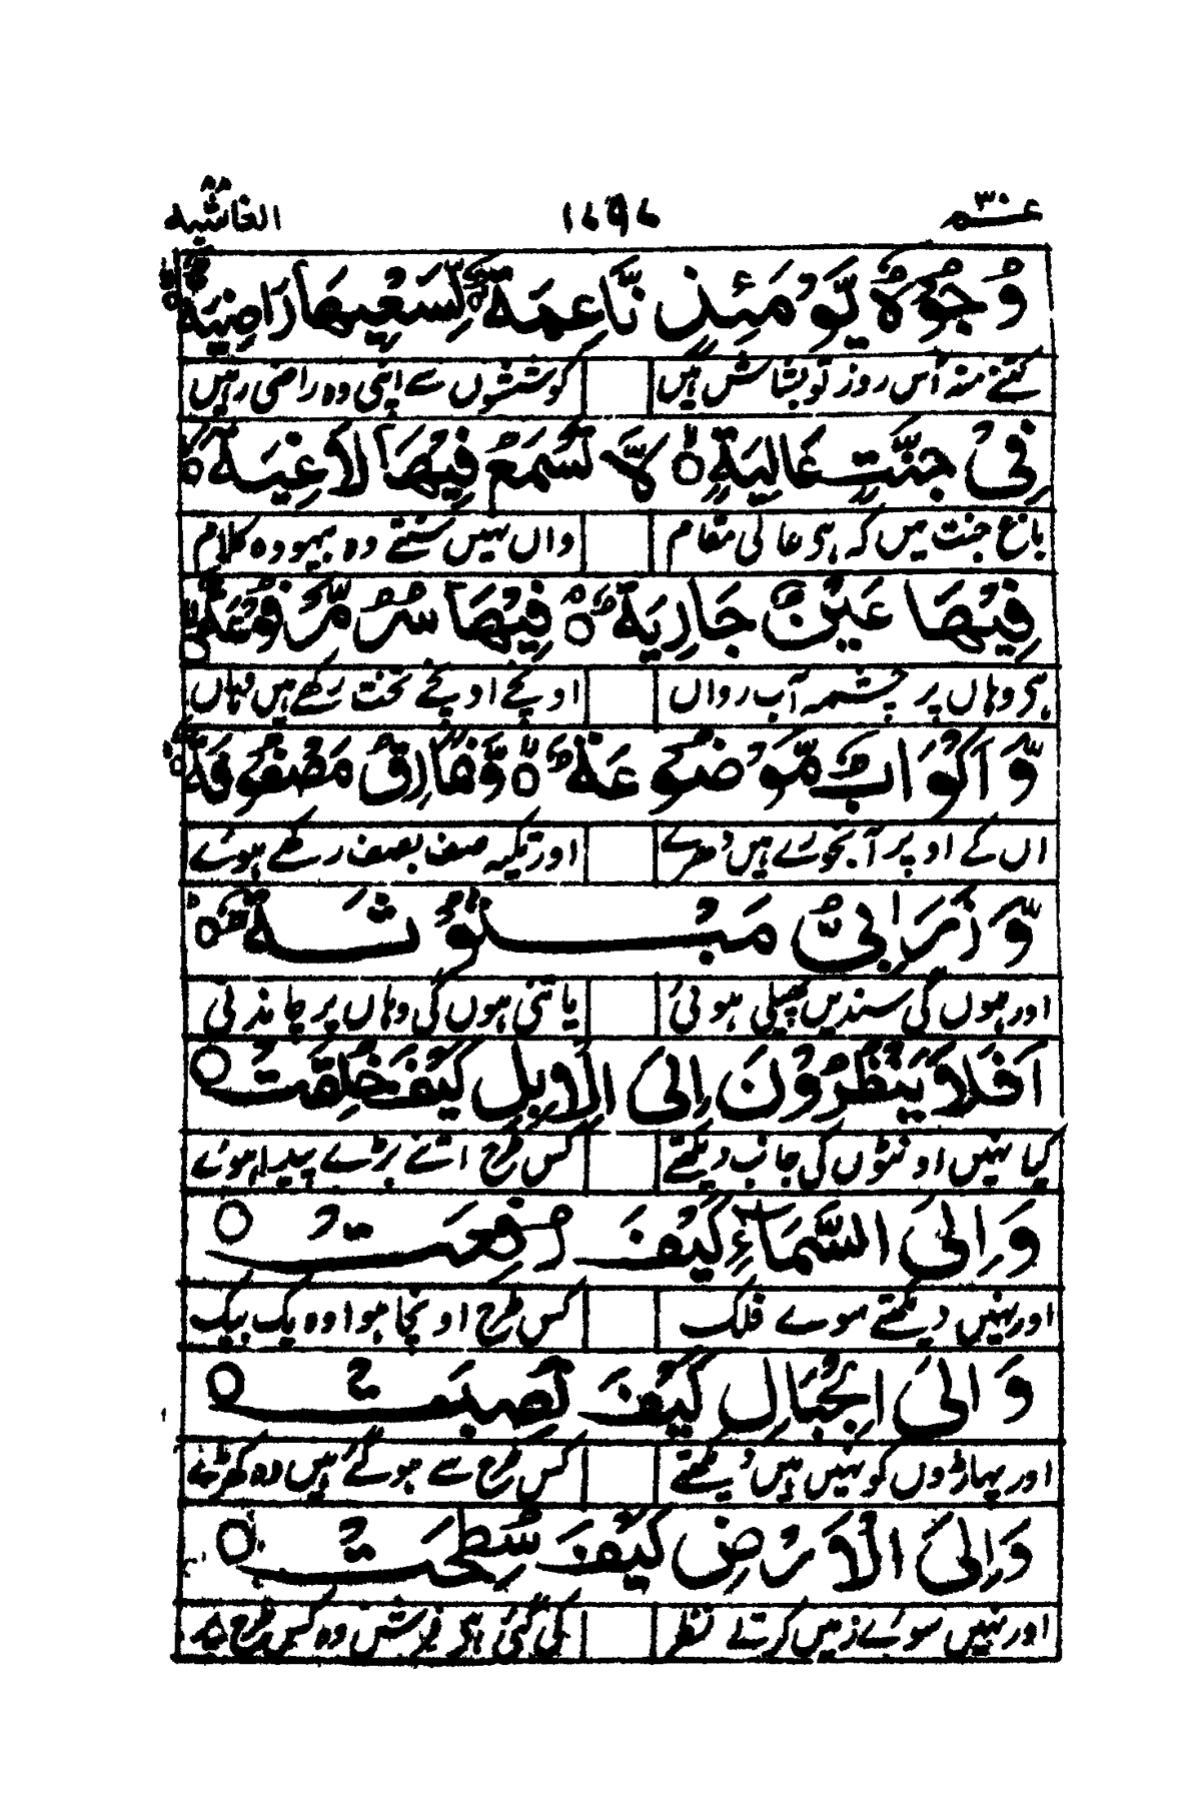 عم ٣٠ ١٤٩٤ الغاشية ٨٨
وُجُوْهٌ يَّوْمَئِذٍ نَّاعِمَةٌ لِّسَعْيِهَا رَاضِيَةٌ
کتنے منہ اُس روز تو بشاش ہیں کوششوں سے اپنی وہ راضی رہیں
فِىْ جَنَّةٍ عَالِيَةٍ لَّا تَسْمَعُ فِيْهَا لَاغِيَةً
باغ جنت میں کہ ہی عالی مقام واں نہیں سنتے وہ بیہودہ کلام
فِيْهَا عَيْنٌ جَارِيَةٌ فِيْهَا سُرُرٌ مَّرْفُوْعَةٌ
ہی وہاں پر چشمہ آب رواں اونچے اونچے تخت رکھے ہیں وہاں
وَّاَكْوَابٌ مَّوْضُوْعَةٌ وَّنَمَارِقُ مَصْفُوْفَةٌ
اں کے اوپر آبخورے ہیں دھرے اور تکیہ صف بصف رکھے ہوئے
وَّزَرَابِىُّ مَبْثُوْثَةٌ
اور ہوں گی سندیں پھیلی ہوئی یا تنی ہوں گی وہاں پر چاندنی
اَفَلَا يَنْظُرُوْنَ اِلَى الْاِبِلِ كَيْفَ خُلِقَتْ
کیا نہیں اونٹوں کی جانب دیکھتے کس طرح اتنے بڑے پیدا ہوئے
وَاِلَى السَّمَاءِ كَيْفَ رُفِعَتْ
اور نہیں دیکھتے سوے فلک کس طرح اونچا ہوا وہ یک بیک
وَاِلَى الْجِبَالِ كَيْفَ نُصِبَتْ
اور پہاڑوں کو نہیں ہیں دیکھتے کس طرح سے ہو گئے ہیں وہ کھڑے
وَاِلَى الْاَرْضِ كَيْفَ سُطِحَتْ
اور نہیں سوئے زمیں کرتے نظر کی گئی ہی فرش وہ کس طرح